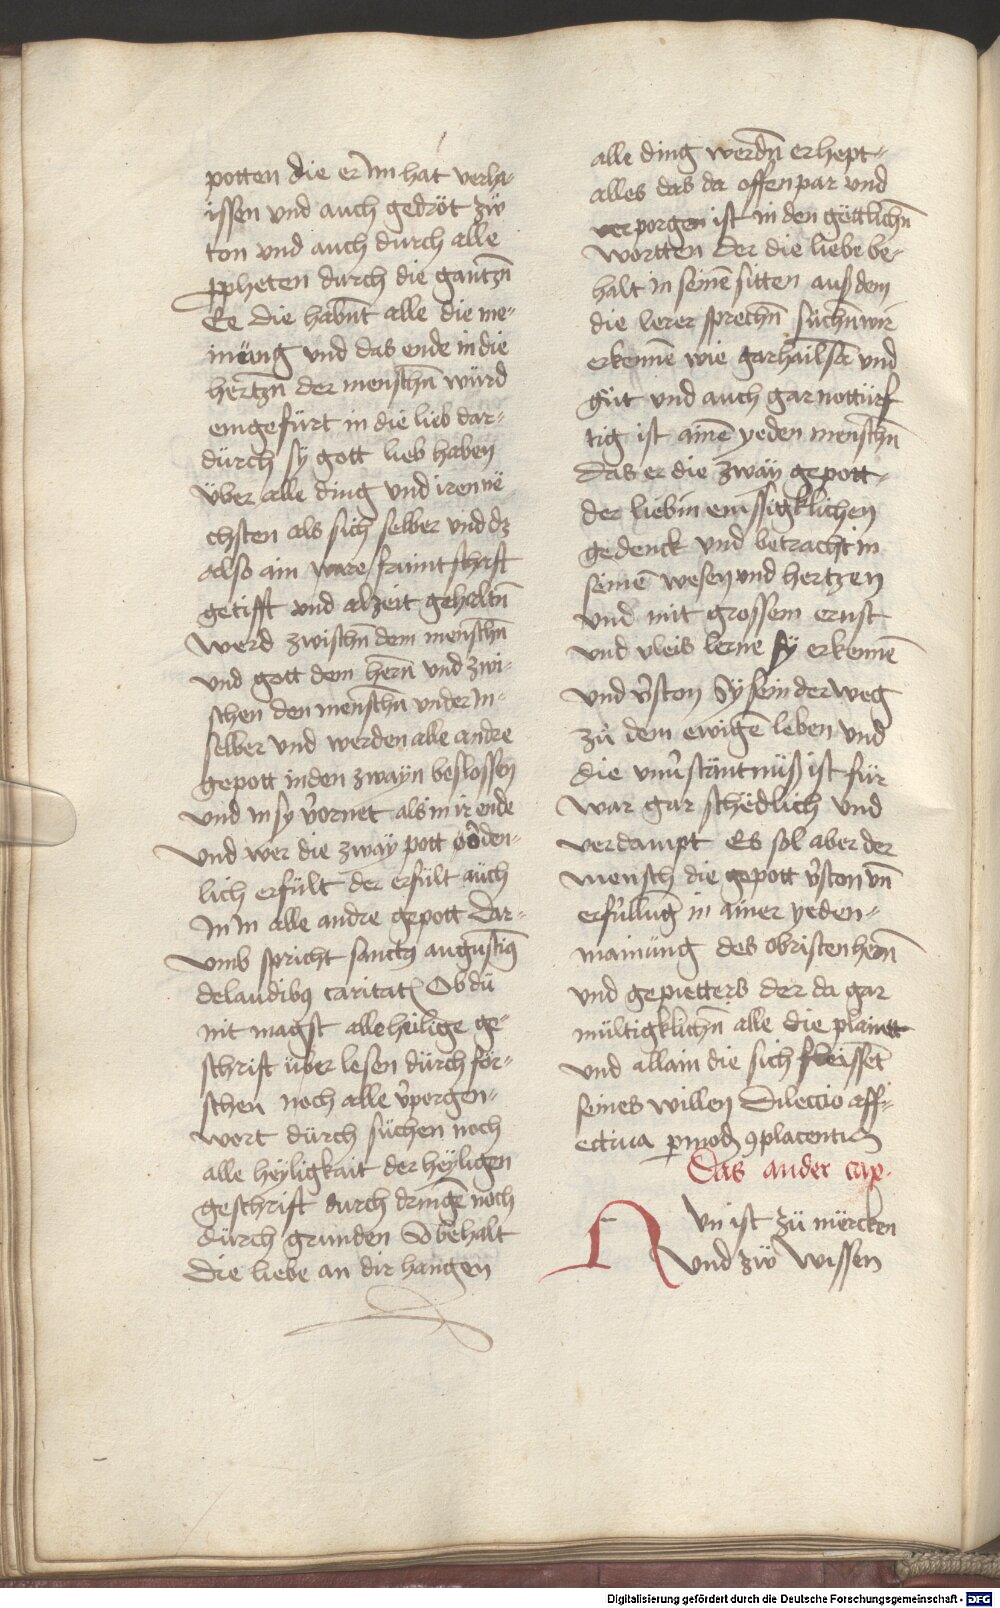 potten die er Im hat verha-
issen vnd auch gedröt zw
ton vnd auch durch alle
ppheten durch die gantzn̄
Ee die habn̄t alle die me-
inüng vnd das ende in die
hertzn̄ der menschn̄ würd
eingefürt in die lieb dar-
dürch sy gott lieb haben
über alle ding vnd iren në
chsten als sich selber vnd dz
also ain ware fraintschafft
getifft vnd alzeit gehaltn̄
werd zwischn̄ dem menschn̄
vnd gott dem hern̄ vnd zwi-
schen den menschn̄ vnder In-
selber vnd werden alle andre
gepott in den zwayn beslossen
vnd in sy v̉ornet als in ir ende
vnd wer die zwäy pott orden-
lich erfült der erfült aüch
In In alle andre gepott Dar-
vmb spricht sanctꝰ augustiꝰ
de laudibꝰ caritatꝭ Ob dü
nit magst alle heilige ge-
schrift über lesen dürch för-
schen noch alle v̉porgen-
wort dürch süchen noch
alle heyligkait der heÿligen
geschrift durch dringē noch
dürch grunden So behalt
die liebe an dir hangen
alle ding werdn̄ erhept-
alles das da offenpar vnd
verporgen ist in den göttlichn̄
wortten Der die liebe be-
halt in seinē sitten auß dem
die lerer sprechn̄ süchn̄ wir
erkennē wie gar hailsā vnd
güt vnd auch gar nottürf
tig ist ainē yeden menschn̄
Das er die zwäÿ gepott-
der lieb in emssigklichen
gedenck vnd betracht in
seinē wesen vnd hertzen
vnd mit grossem ernst
vnd vleis lerne sÿ erkennē
vnd v̉ston Sÿ sein der weg
zü dem ewigē leben vnd
die vnv̉stäntnüß ist für
war gar schëdlich vnd
verdampt Es sol aber der
mensch die gepott v̉ston vn̄
erfüllūg in ainer yeden-
mainüng des obristen hern̄
vnd gepietters der da gar
mültigklichn̄ alle die plaintt
vnd allain die sich fleissēt
seines willen Dileccio aff-
ectiua p modū ꝯplacentie
Das ander cap.
Nvn ist zü mërcken
vnd zw wissen
Digitalisierung gefördert durch die Deutsche Forschungsgemeinschaft - DFG